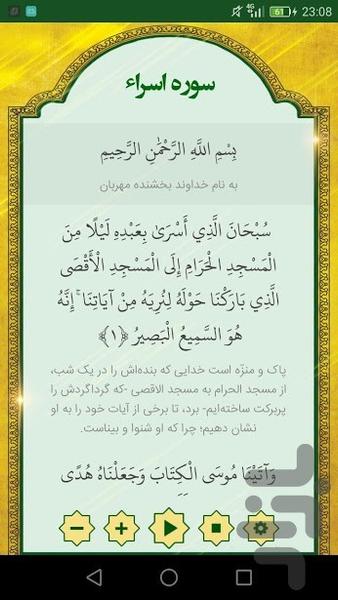 4G 61 23:08
سوره اسراء
بِسْمِ اللَّهِ الرَّحْمَٰنِ الرَّحِيمِ
به نام خداوند بخشنده مهربان
سُبْحَانَ الَّذِي أَسْرَىٰ بِعَبْدِهِ لَيْلًا مِنَ
الْمَسْجِدِ الْحَرَامِ إِلَى الْمَسْجِدِ الْأَقْصَى
الَّذِي بَارَكْنَا حَوْلَهُ لِنُرِيَهُ مِنْ آيَاتِنَا ۚ إِنَّهُ
هُوَ السَّمِيعُ الْبَصِيرُ ﴿١﴾
پاک و منزّه است خدایی که بنده‌اش را در یک شب،
از مسجد الحرام به مسجد الاقصی -که گرداگردش را
پربرکت ساخته‌ایم- برد، تا برخی از آیات خود را به او
نشان دهیم؛ چرا که او شنوا و بیناست.
وَآتَيْنَا مُوسَى الْكِتَابَ وَجَعَلْنَاهُ هُدًى
بازار